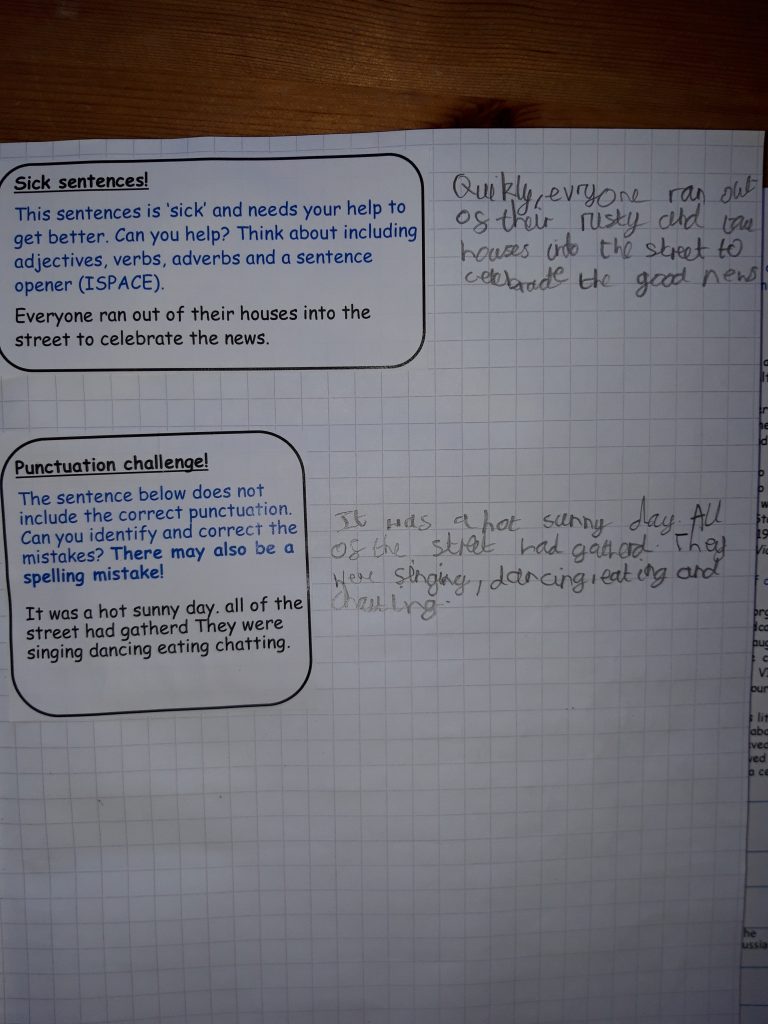 Sick sentences!
This sentences is 'sick' and needs your help to
get better. Can you help? Think about including
adjectives, verbs, adverbs and a sentence
opener (ISPACE).
Everyone ran out of their houses into the
street to celebrate the news.
Quikly, evryone ran out
of their rusky and
houses into the street to
celebrade the good news
Punctuation challenge!
The sentence below does not
include the correct punctuation.
Can you identify and correct the
mistakes? There may also be a
spelling mistake!
It was a hot sunny day. all of the
street had gatherd They were
singing dancing eating chatting.
It was a hot sunny day. All
of the street had gatherd. They
were singing, dancing, eating and